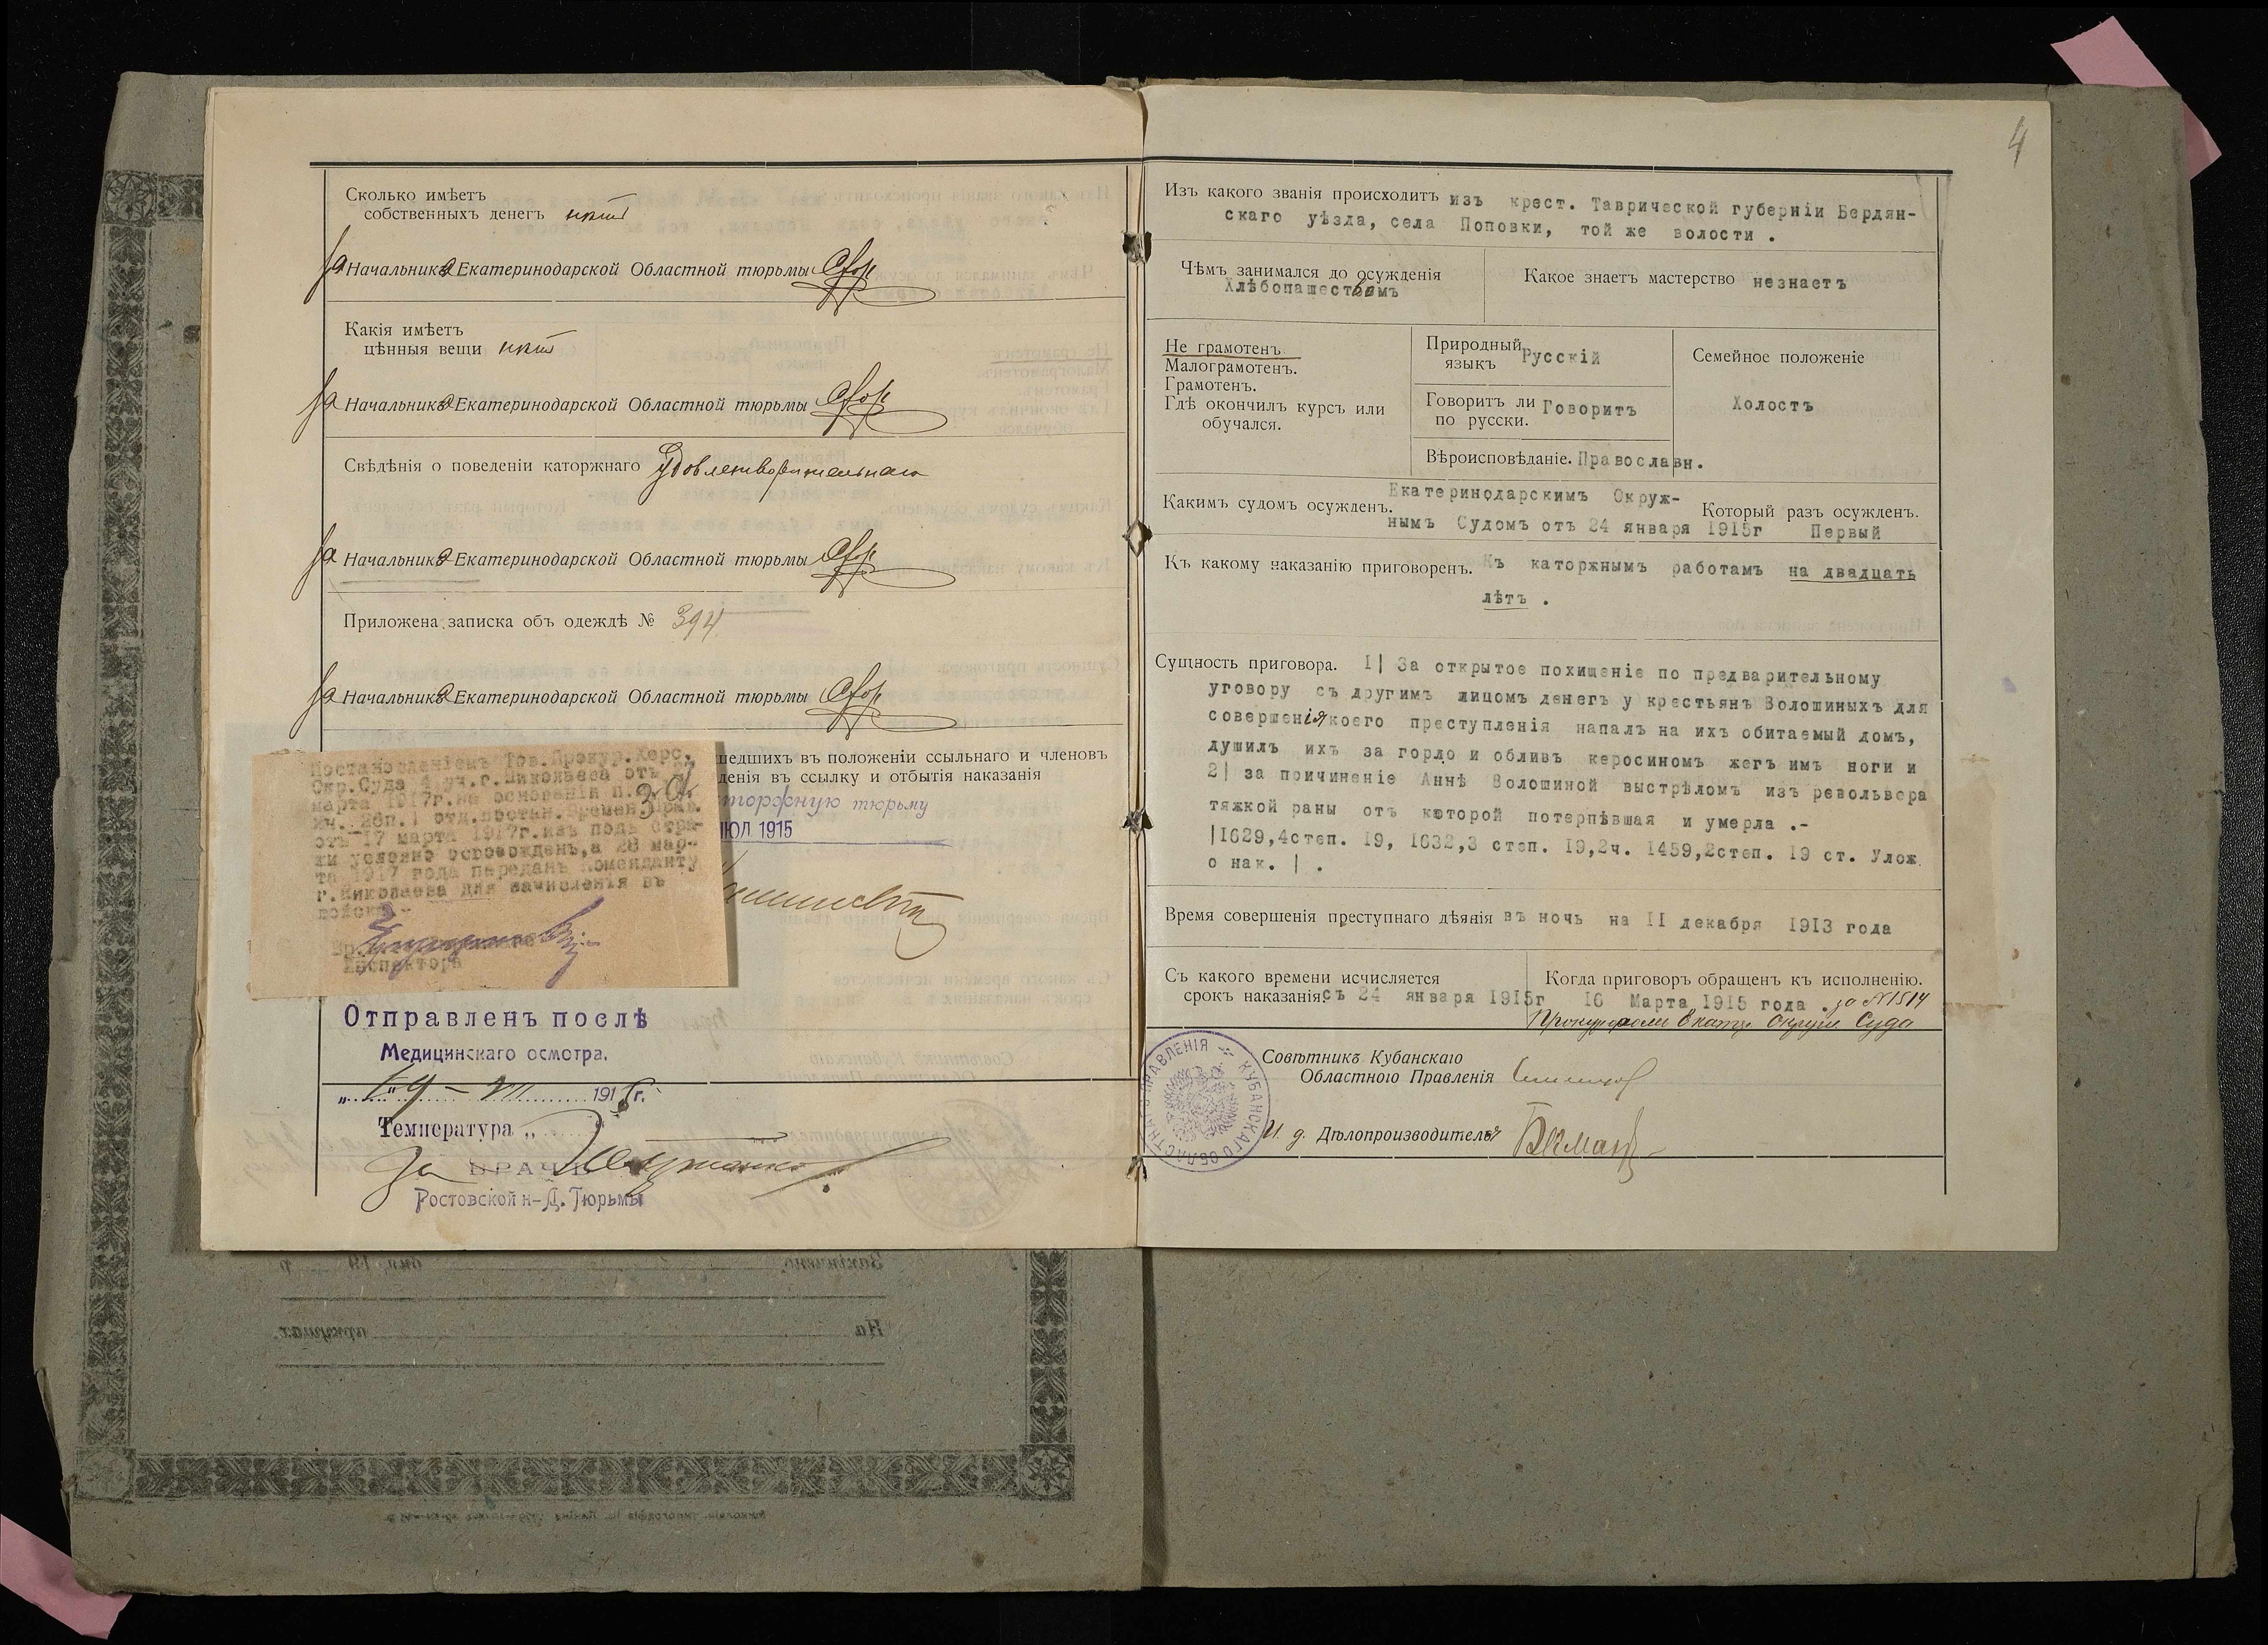 Сколько имѣетъ
собственныхъ денегъ нѣтъ
За Начальника Екатеринодарской Областной тюрьмы
Какія имѣетъ
цѣнныя вещи нѣтъ
За Начальника Екатеринодарской Областной тюрьмы
Свѣдѣнія о поведеніи каторжнаго Удовлетворительнаго
За Начальника Екатеринодарской Областной тюрьмы
Приложена записка объ одеждѣ № 394
За Начальника Екатеринодарской Областной тюрьмы
шедшихъ въ положеніи ссыльнаго и членовъ
денія въ ссылку и отбытія наказанія
торжную тюрьму
ІЮЛ 1915
Постановленіемъ Тов. Прокур. Херс.
Окр. Суда 4 уч. г. Николаева отъ
марта 1917г. на основаніи п.
отд. постан. Времен. Прав.
отъ 17 марта 1917г. изъ подъ стра-
жи условно освобожденъ, а 28 мар-
та 1917 года переданъ Коменданту
г. Николаева для зачисленія въ
войска.-
Инспектора
Отправленъ послѣ
Медицинскаго осмотра.
„19 - VII 1915г.
Температура „
За ВРАЧЪ
Ростовской н-Д. Тюрьмы
4
Изъ какого званія происходитъ изъ крест. Таврической губерніи Бердян-
скаго уѣзда, села Поповки, той же волости .
Чѣмъ занимался до осужденія
Хлѣбопашествомъ
Какое знаетъ мастерство незнаетъ
Не грамотенъ.
Малограмотенъ.
Грамотенъ.
Гдѣ окончилъ курсъ или
обучался.
Природный
языкъ Русскій
Говоритъ ли
по русски. Говоритъ
Вѣроисповѣданіе. Православн.
Семейное положеніе
Холостъ
Какимъ судомъ осужденъ. Екатеринодарскимъ Окруж-
нымъ Судомъ отъ 24 января 1915г
Который разъ осужденъ.
Первый
Къ какому наказанію приговоренъ. Къ каторжнымъ работамъ на двадцать
лѣтъ .
Сущность приговора. I| За открытое похищеніе по предварительному
уговору съ другимъ лицомъ денегъ у крестьянъ Волошиныхъ для
совершенія коего преступленія напалъ на ихъ обитаемый домъ,
душилъ ихъ за горло и обливъ керосиномъ жегъ имъ ноги и
2| за причиненіе Аннѣ Волошиной выстрѣломъ изъ револьвера
тяжкой раны отъ которой потерпѣвшая и умерла .-
|1629,4степ. 19, 1632,3 степ. 19,2ч. 1459,2степ. 19 ст. Улож.
о нак. | .
Время совершенія преступнаго дѣянія въ ночь на II декабря 1913 года
Съ какого времени исчисляется
срокъ наказанія. съ 24 января 1915г
Когда приговоръ обращенъ къ исполненію.
16 Марта 1915 года . за № 1514
Прокуроромъ Екатер. Окружн. Суда
Совѣтникъ Кубанскаго
Областного Правленія
И. д. Дѣлопроизводителя
КУБАНСКАГО ОБЛАСТНАГО ПРАВЛЕНІЯ
Заключено
191
На